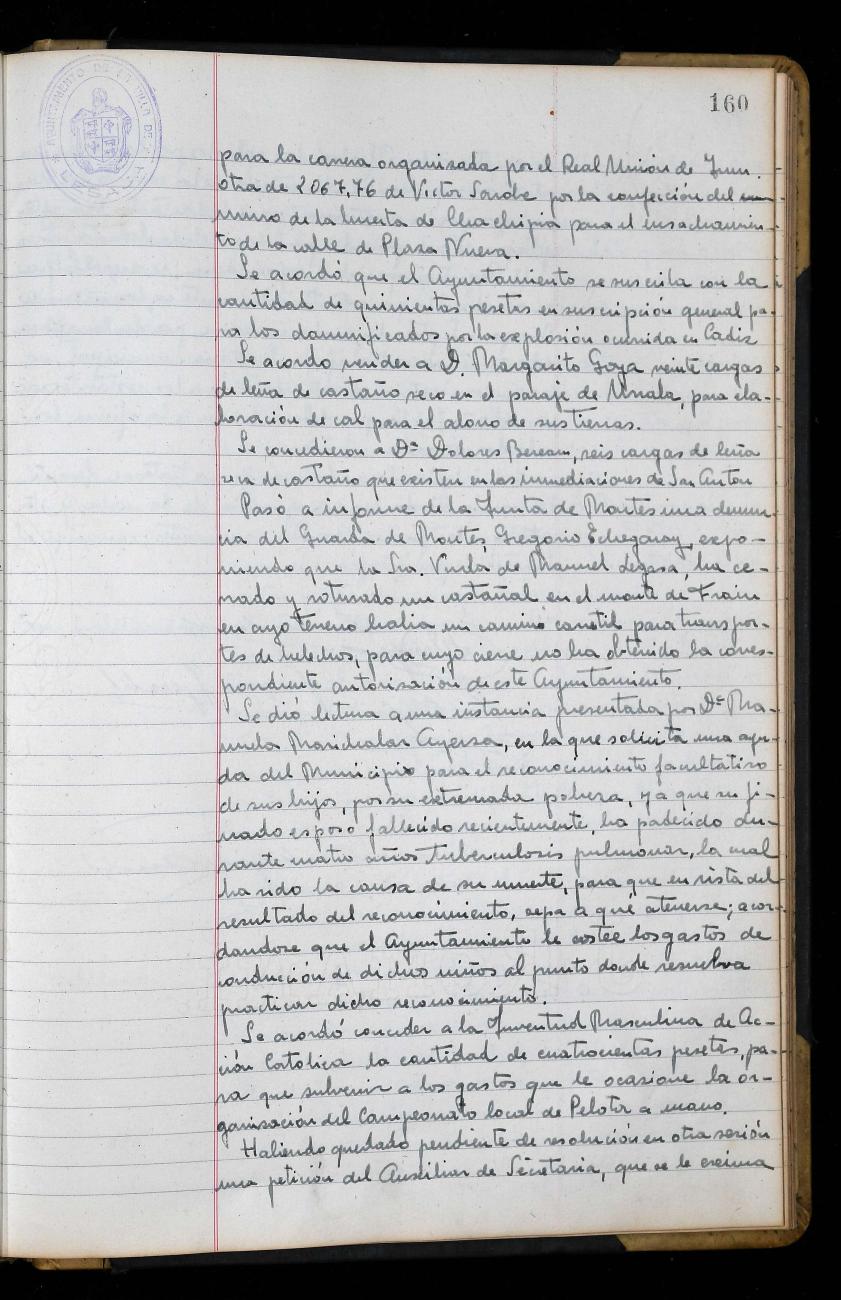 160
AYUNTAMIENTO DE LA VILLA DE
LESACA
para la carrera organizada por el Real Unión de Irun.
otra de 2067,76 de Victor Sarobe por la confección del
muro de la huerta de para el ensachamien-
to de la calle de Plaza Nueva.
Se acordó que el Ayuntamiento se suscriba con la
cantidad de quinientas pesetas en suscripción general pa-
ra los damnificados por la explosión ocurrida en Cadiz
Se acordo vender a D. Margarito Goya veinte cargas
de leña de castaño seco en el paraje de Unala, para ela-
boración de cal para el abono de sus tierras.
Se concedieron a Dª Dolores Beream, seis cargas de leña
seca de castaño que existen en las inmediaciones de San Anton
Pasó a informe de la Junta de Montes una denun-
cia del Guarda de Montes, Gregorio Echegaray, expo-
niendo que la Sra. Viuda de Manuel Legasa, ha ce-
rrado y roturado un castañal en el monte de Frain
en cuyo terreno habia un camino carretil para transpor-
tes de helechos, para cuyo cierre no ha obtenido la corres-
pondiente autorización de este Ayuntamiento.
Se dió lectura a una instancia presentada por Dª Ma-
nuela Marichalar Ayerza, en la que solicita una ayu-
da del Municipio para el reconocimiento facultativo
de sus hijos, por su extremada pobreza, ya que su fi-
nado esposo fallecido recientemente, ha padecido du-
rante cuatro años tuberculosis pulmonar, la cual
ha sido la causa de su muerte, para que en vista del
resultado del reconocimiento, sepa a qué atenerse; acor-
dandose que el Ayuntamiento le costee los gastos de
conducción de dichos niños al punto donde resuelva
practicar dicho reconocimiento.
Se acordó conceder a la Juventud Masculina de Ac-
ción Católica la cantidad de cuatrocientas pesetas, pa-
ra que subvenir a los gastos que le ocasione la or-
ganización del Campeonato local de Pelota a mano.
Habiendo quedado pendiente de resolución en otra sesión
una petición del Auxiliar de Secretaria, que se le exima